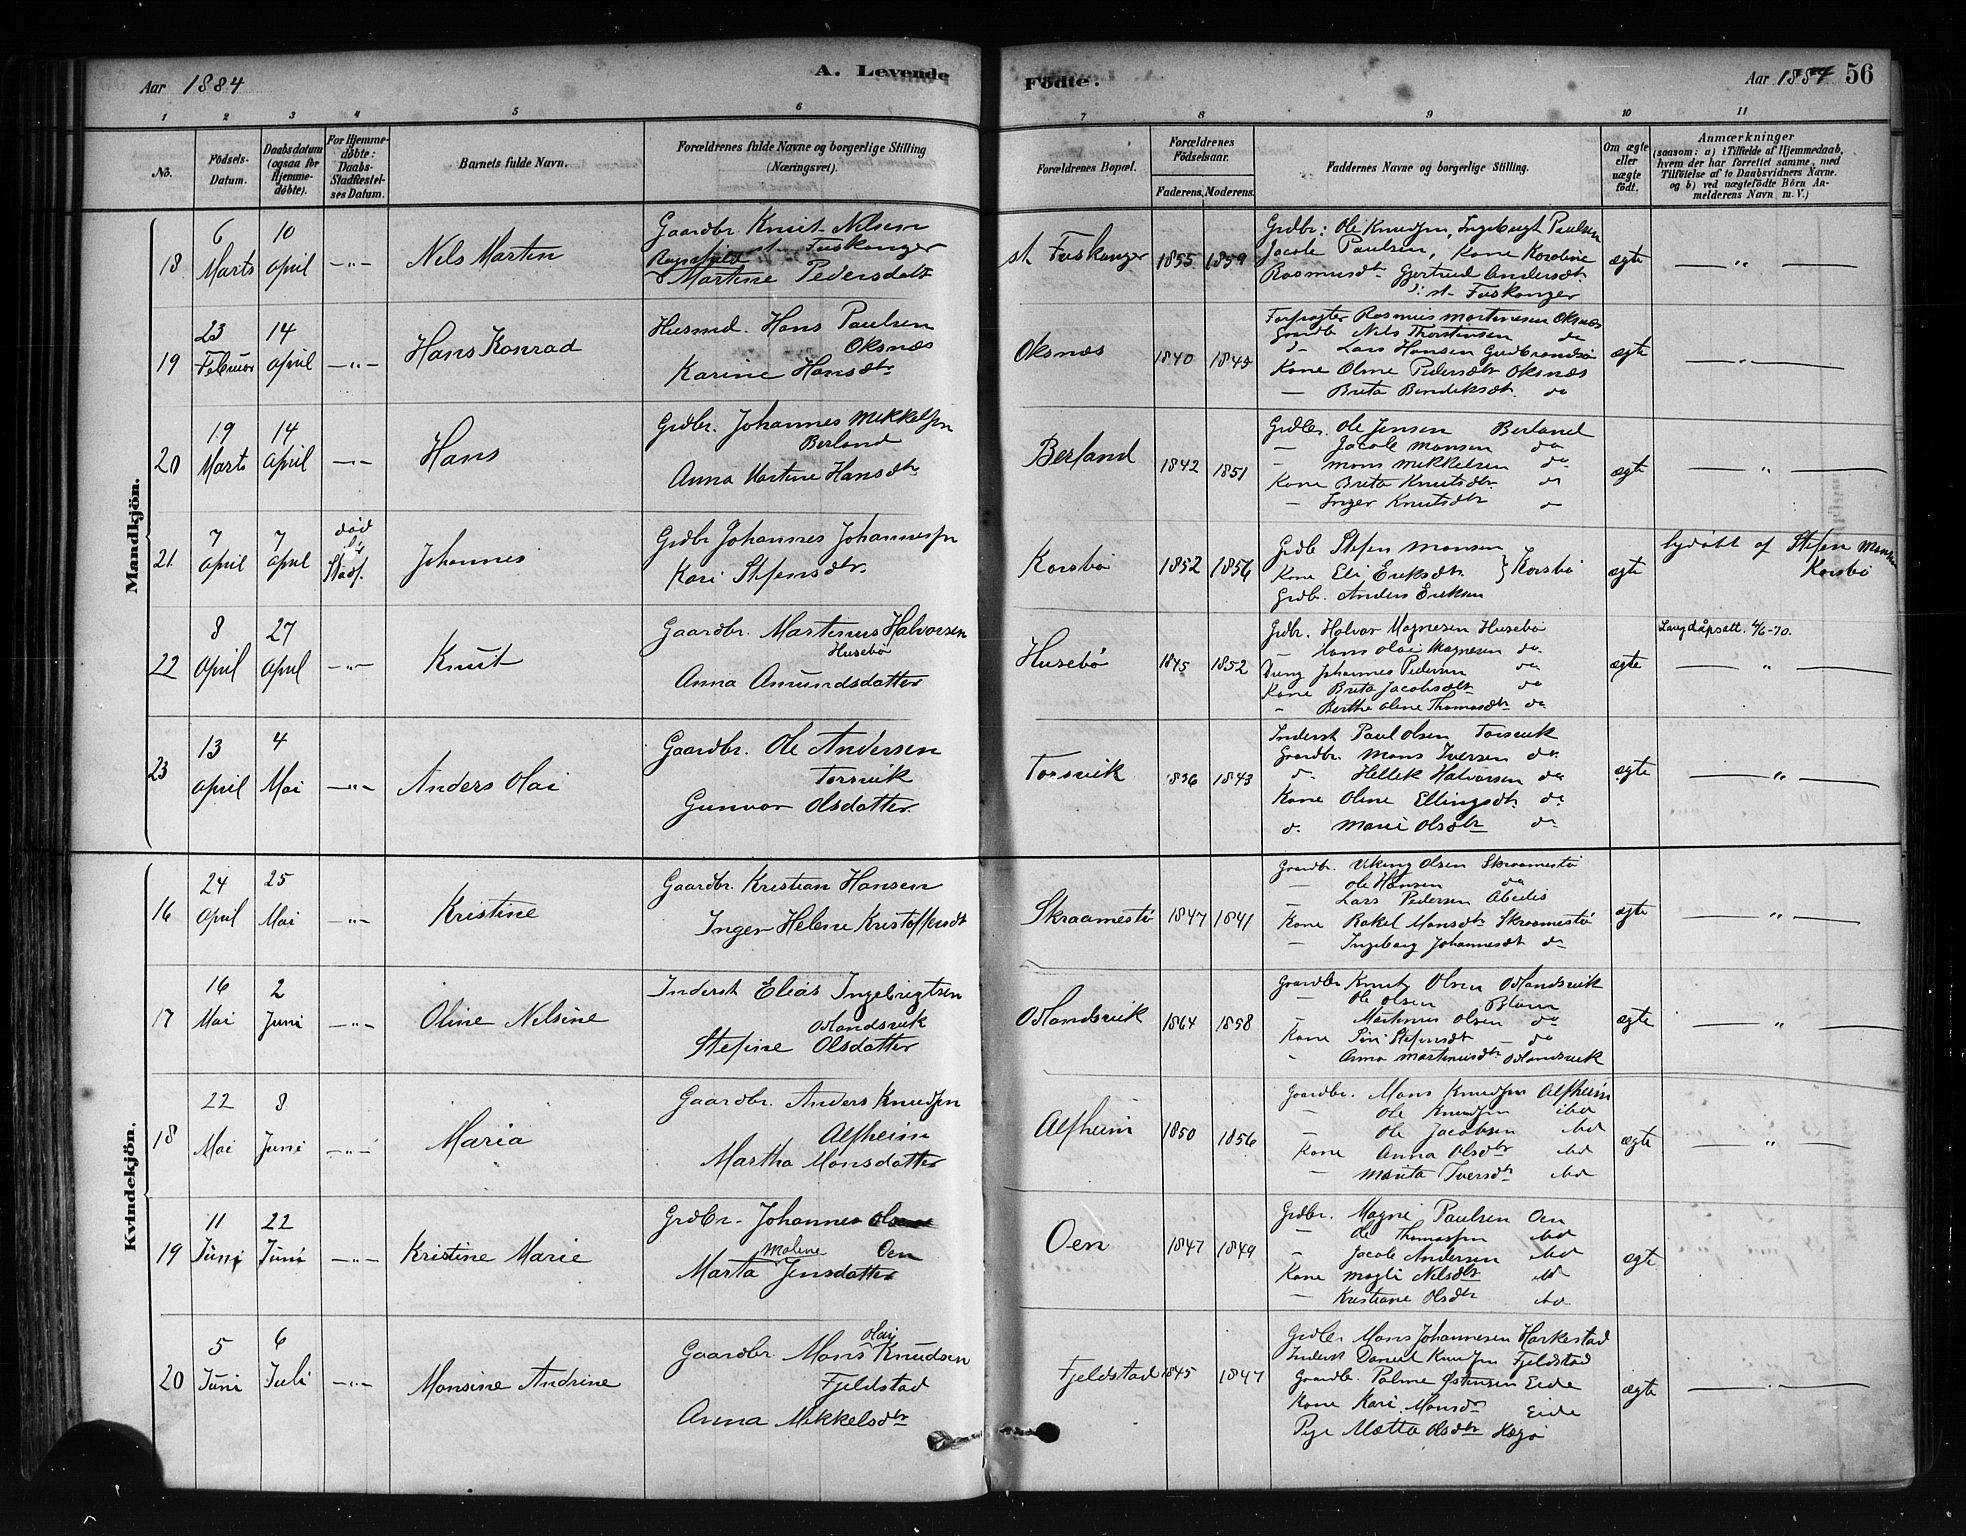 Aar 1884
A. Levende
Födte.
Aar 1884 56
1 2 3 4 5 6 7 8 9 10 11
No.
Födsels-Datum.
Daabsdatum (ogsaa for Hjemmedöbte).
For Hjemmedöbte: Daabs-Stadfæstelses Datum.
Barnets fulde Navn.
Forældrenes fulde Navne og borgerlige Stilling (Næringsvei).
Forældrenes Bopæl.
Forældrenes Födselsaar.
Faderens. Moderens.
Faddernes Navne og borgerlige Stilling.
Om ægte eller uægte födt.
Anmærkninger
(saasom: a) i Tilfælde af Hjemmedaab, hvem der har forrettet samme, med Tilföielse af to Daabsvidners Navne. og b) ved uægtefödte Börn Anmelderens Navn m. V.)
Mandkjön.
18
6 Marts
10 April
—„—
Nels Martin
Gaardbr Knut Nilsen
st. Fuskanger
Ragnhild
Martine Pedersdatr
st Fuskanger
1855 1859
Grdbr: Ole Knudsen, Ingebrigt Paulsen
Jacob Paulsen, Kone Karoline
Rasmusdt Gjertrud Andersdt.
: st. Fuskanger
ægte
— „ —
19
23 Februar
14 April
—„—
Hans Konrad
Husmd. Hans Paulsen
Oksnæs
Karine Hansdtr
Oksnæs
1840 1845
Forpagter Rasmus Martinesen Oksnæs
Gaardb Nils Thorstensen do
d- Lars Hansen Gudbrandsø
Kone Oline Pedersdtr Oksnæs
— Brita Bendiksdt. do
ægte
— „ —
20
19 Marts
14 April
—„—
Hans
Grdbr. Johannes Mikkelsen
Berland
Anna Martine Hansdtr
Berland
1842 1851
Grdbr. Ole Jensen Berland
— Jacob Monsen do
— Mons Mikkelsen do.
Kone Brita Knutsdtr do
— Inger Knutsdtr do
ægte
— „ —
21
7 April
7 April
død
Stadf.
Johannes
Grdbr Johannes Johannessen
Kari Stefensdtr.
Korsbø
1852 1856
Grdb Stefen Monsen
Kone Eli Eriksdtr. } Korsbø
Grdb. Anders Eriksen
ægte
hjdøbt af Stefen Monsen
Korsbø
22
8 April
27 April
—„—
Knut
Gaardbr. Martinus Halvorsen
Husebø
Anna Amundsdatter
Husebø
1845 1852
Grdbr. Halvor Magnesen Husebø
— Hans Olai Magnesen do.
Ung Johannes Pedersen do
Kone Brita Jacobsdtr do
" Berthe Oline Thomasdtr do
ægte
Laugdåpsatt. 4/6-70.
— „ —
23
13 April
4 Mai
—„—
Anders Olai
Gaardbr. Ole Andersen
Torsvik
Gunvor Olsdatter.
Torsvik
1836 1843
Inderst Paul Olsen Torsvik
Gaardbr. Mons Iversen do.
d. Hellek Halvorsen do
Kone Oline Ellingsdtr do
d. Marie Olsdtr do
ægte
— „ —
Kvindekjön.
16
24 April
25 Mai
—„—
Kristine
Gaardbr. Kristian Hansen
Inger Helene Kristoffersdt
Skraamestø
1847 1841
Gaardbr. Viking Olsen Skraamestø
— Ole Hansen do
— Lars Pedersen Abedis
Kone Rakel Monsdtr Skraamestø
— Ingeborg Johannesdt do
ægte
— „ —
17
16 Mai
2 Juni
—„—
Oline Nilsine
Inderst Elias Ingebrigtsen
Odlandsvik
Stefine Olsdatter
Odlandsvik
1864 1858
Gaardbr Knut Olsen Odlandsvik
— Ole Olsen Blom
— Martinus Olsen do
Kone Siri Stefensdt do
" Anna Martinusdtr Odlandsvik
ægte
— „ —
18
22 Mai
8 Juni
—„—
Maria
Gaardbr. Anders Knudsen
Alfheim
Martha Monsdatter
Alfheim
1850 1856
Gaardbr. Mons Knudsen Alfheim
— Ole Knudsen ibd
— Ole Jacobsen ibd
Kone Anna Olsdtr ibd
— Marita Iversdtr ibd
ægte
— „ —
19
11 Juni
22 Juni
—„—
Kristine Marie
Grdbr. Johannes Olsen
Oen
Malene
Marta Jensdatter
Oen
1847 1849
Grdbr. Magne Paulsen Oen
— Ole Thomassen ibd
— Jacob Andersen ibd
Kone Magli Nilsdtr ibd
— Kristiane Olsdtr ibd
ægt
20
5 Juni
6 Juli
—„—
Monsine Andrine
Olai
Gaardbr Mons Knudsen
Fjeldstad
Anna Mikkelsdtr
Fjeldstad
1845 1847
Grdbr. Mons Johannesen Harkestad
Inderst Daniel Knudsen Fjeldstad
Gaardbr. Palme Østensen Eide
Kone Kari Monsdtr Eide
Pige Mætta Olsdtr
ægte
— „ —